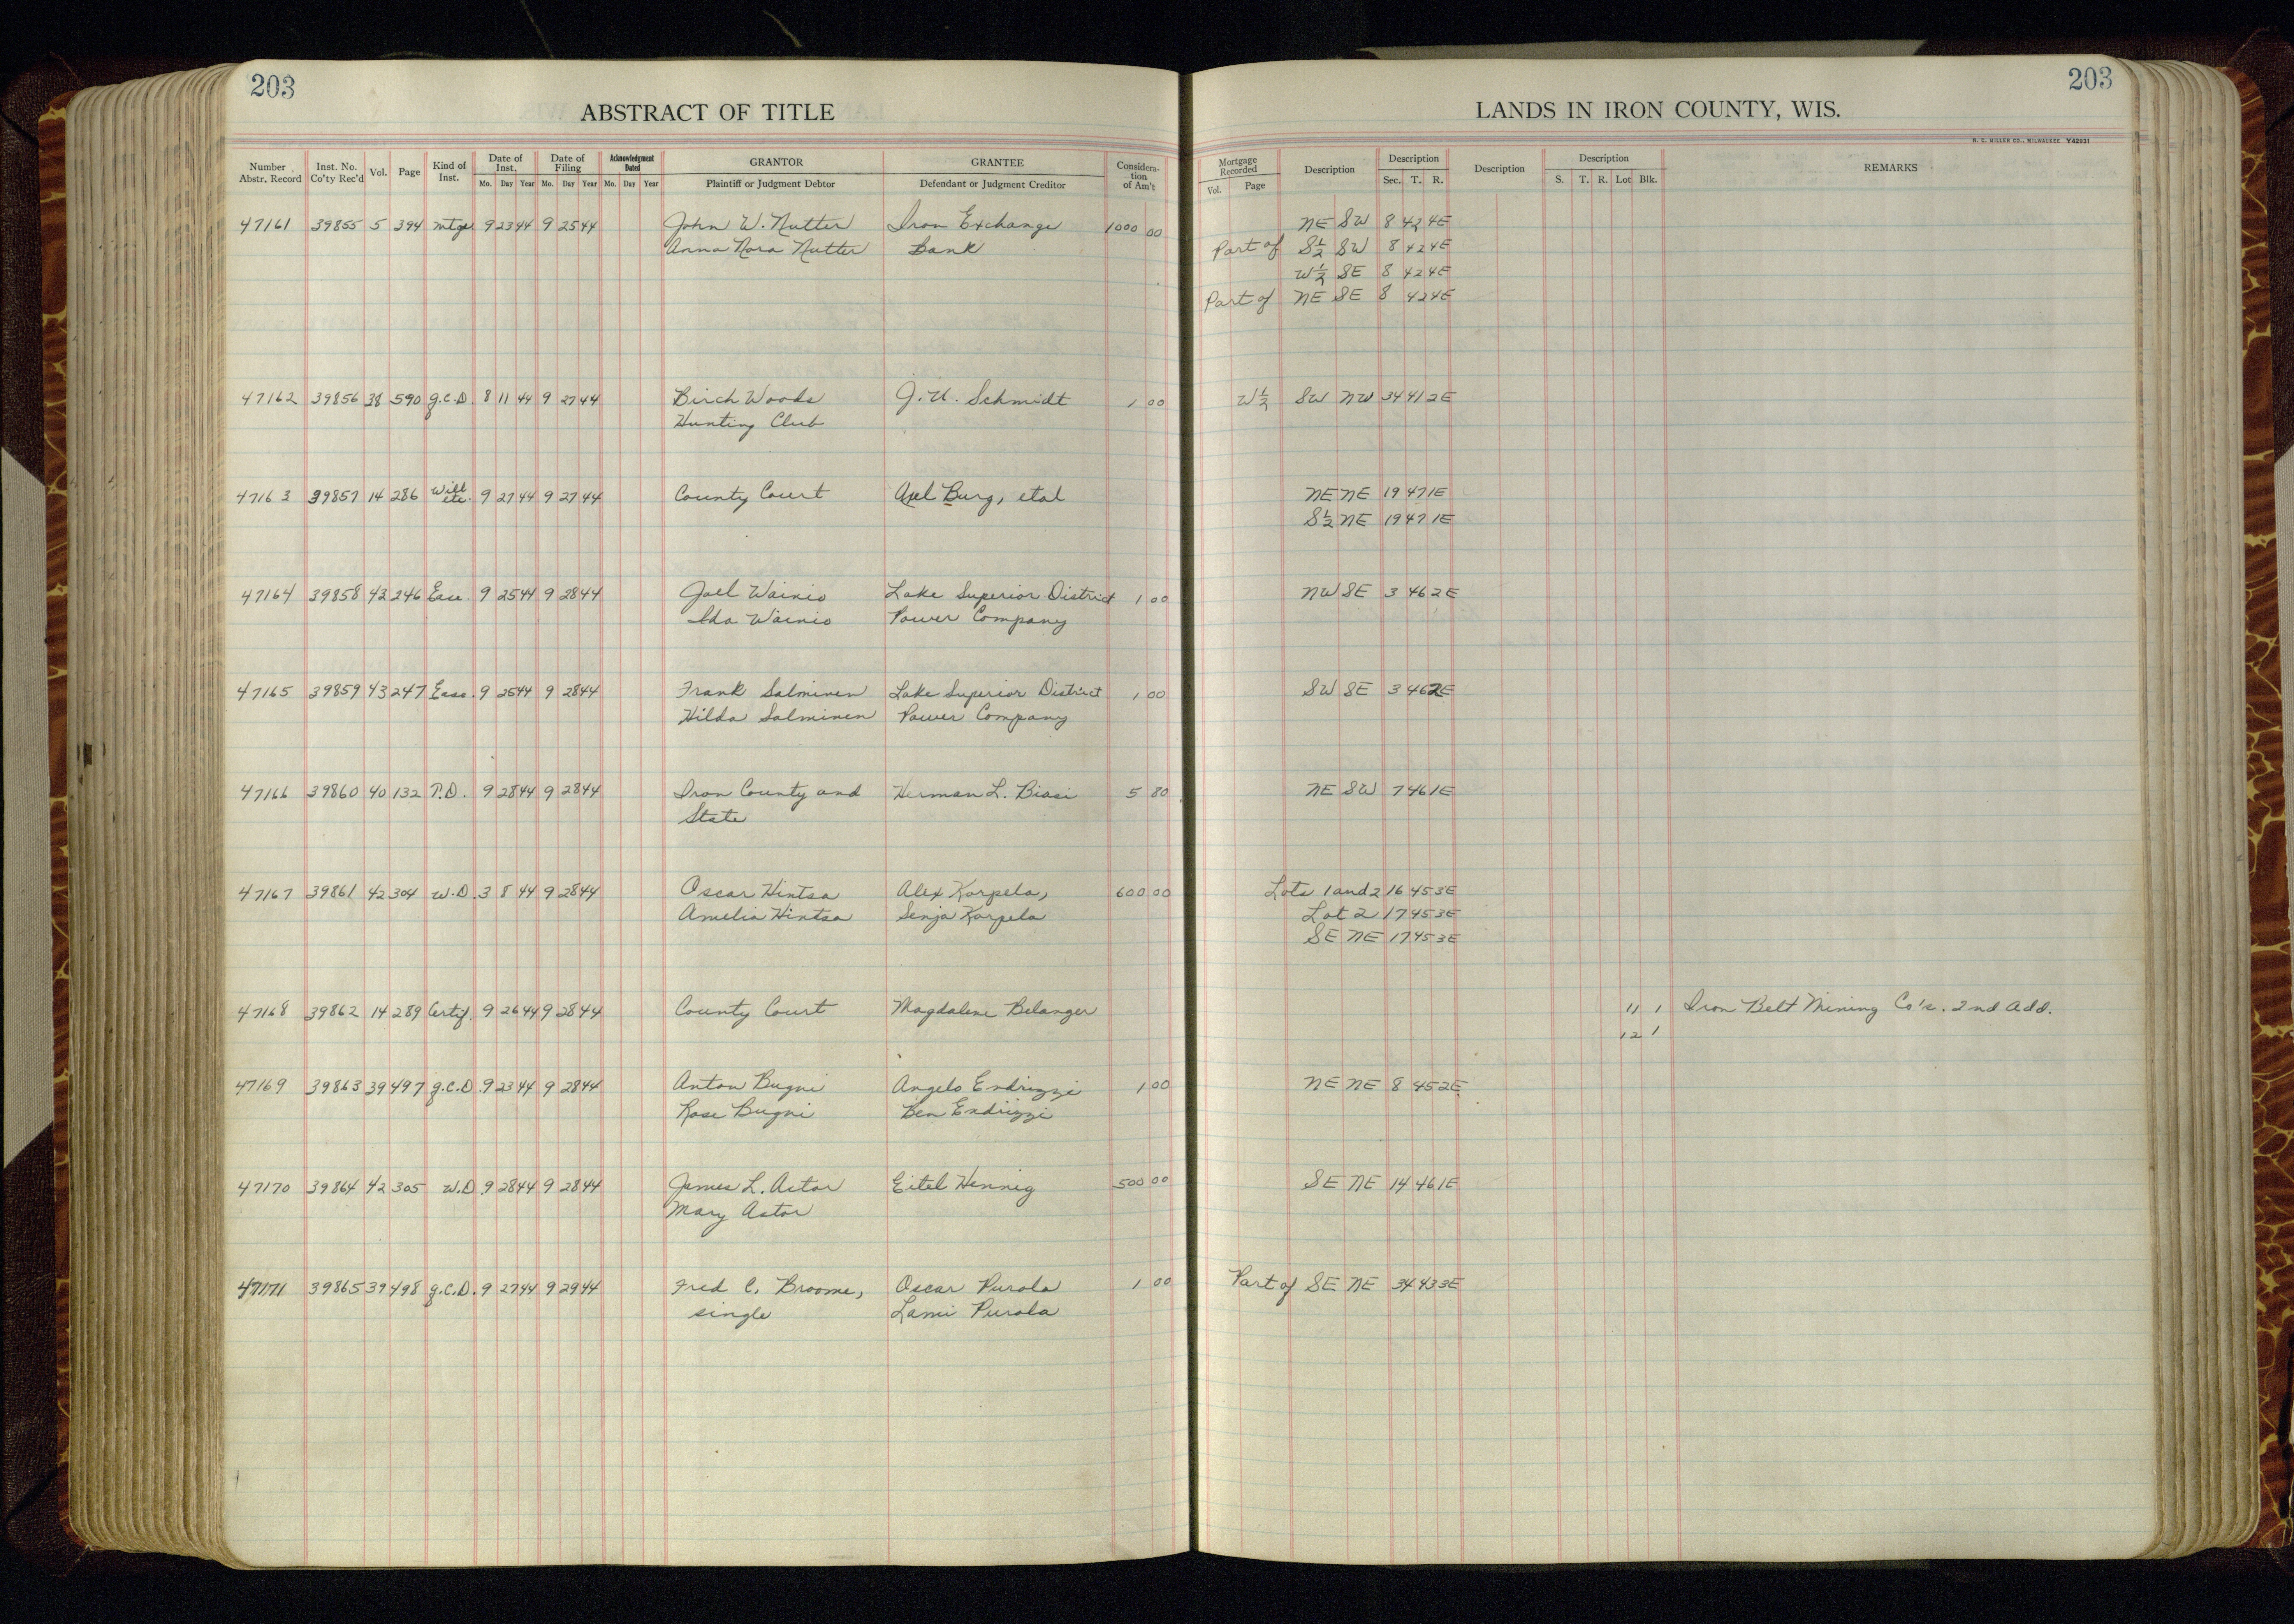 203
203
ABSTRACT OF TITLE
LANDS IN IRON COUNTY, WIS.
H. C. MILLER CO., MILWAUKEE Y42931
Number Abstr. Record Inst. No. Co'ty Rec'd Vol. Page Kind of Inst. Date of Inst. Mo. Day Year Date of Filing Mo. Day Year Acknowledgment Dated Mo. Day Year GRANTOR Plaintiff or Judgment Debtor GRANTEE Defendant or Judgment Creditor Considera-tion of Am't Mortgage Recorded Vol. Page Description Description Sec. T. R. Description Description S. T. R. Lot Blk. REMARKS
47161 39855 5 394 mtge 9 23 44 9 25 44 John W. Nutter Iron Exchange 1000 00 NE SW 8 42 4E
Anna Nora Nutter Bank Part of S½ SW 8 42 4E
W½ SE 8 42 4E
Part of NE SE 8 42 4E
47162 39856 38 590 g.C.D 8 11 44 9 27 44 Birch Woods J. U. Schmidt 1 00 W½ SW NW 34 41 2E
Hunting Club
47163 39857 14 286 Will etc. 9 27 44 9 27 44 County Court Axel Burg, etal NE NE 19 47 1E
S½ NE 19 47 1E
47164 39858 43 246 Ease. 9 25 44 9 28 44 Joel Wainio Lake Superior District 1 00 NW SE 3 46 2E
Ida Wainio Power Company
47165 39859 43 247 Ease. 9 25 44 9 28 44 Frank Salminen Lake Superior District 1 00 SW SE 3 46 2E
Hilda Salminen Power Company
47166 39860 40 132 T.D. 9 28 44 9 28 44 Iron County and Herman L. Biasi 5 80 NE SW 7 46 1E
State
47167 39861 42 304 W.D. 3 8 44 9 28 44 Oscar Hintsa Alex Karpela, 600 00 Lots 1 and 2 16 45 3E
Amelia Hintsa Senja Karpela Lot 2 17 45 3E
SE NE 17 45 3E
47168 39862 14 289 Certif. 9 26 44 9 28 44 County Court Magdalene Belanger 11 1 Iron Belt Mining Co's. 2nd Add.
12 1
47169 39863 39 497 g.C.D. 9 23 44 9 28 44 Anton Bugni Angelo Endrizzi 1 00 NE NE 8 45 2E
Rose Bugni Ben Endrizzi
47170 39864 42 305 W.D. 9 28 44 9 28 44 James L. Astor Eitel Hennig 500 00 SE NE 14 46 1E
Mary Astor
47171 39865 39 498 g.C.D. 9 27 44 9 29 44 Fred C. Broome, Oscar Purola 1 00 Part of SE NE 34 43 3E
single Lami Purola